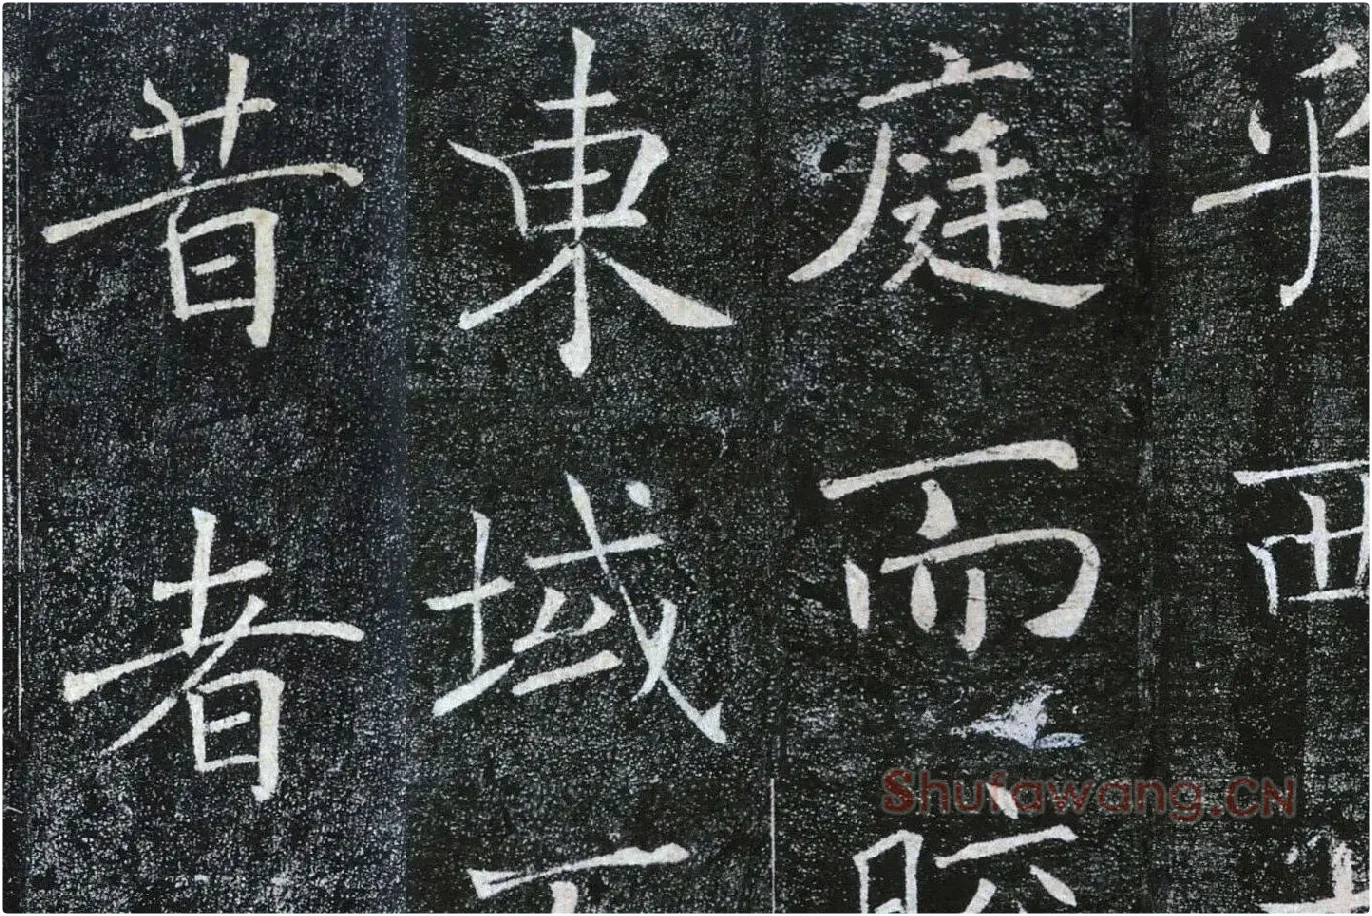 乎西
庭而
東域
昔者
Shufawang.CN